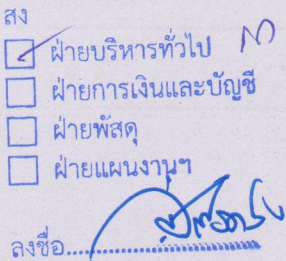 สง
ฝ่ายบริหารทั่วไป
ฝ่ายการเงินและบัญชี
ฝ่ายพัสดุ
ฝ่ายแผนงานฯ
ลงชื่อ......................